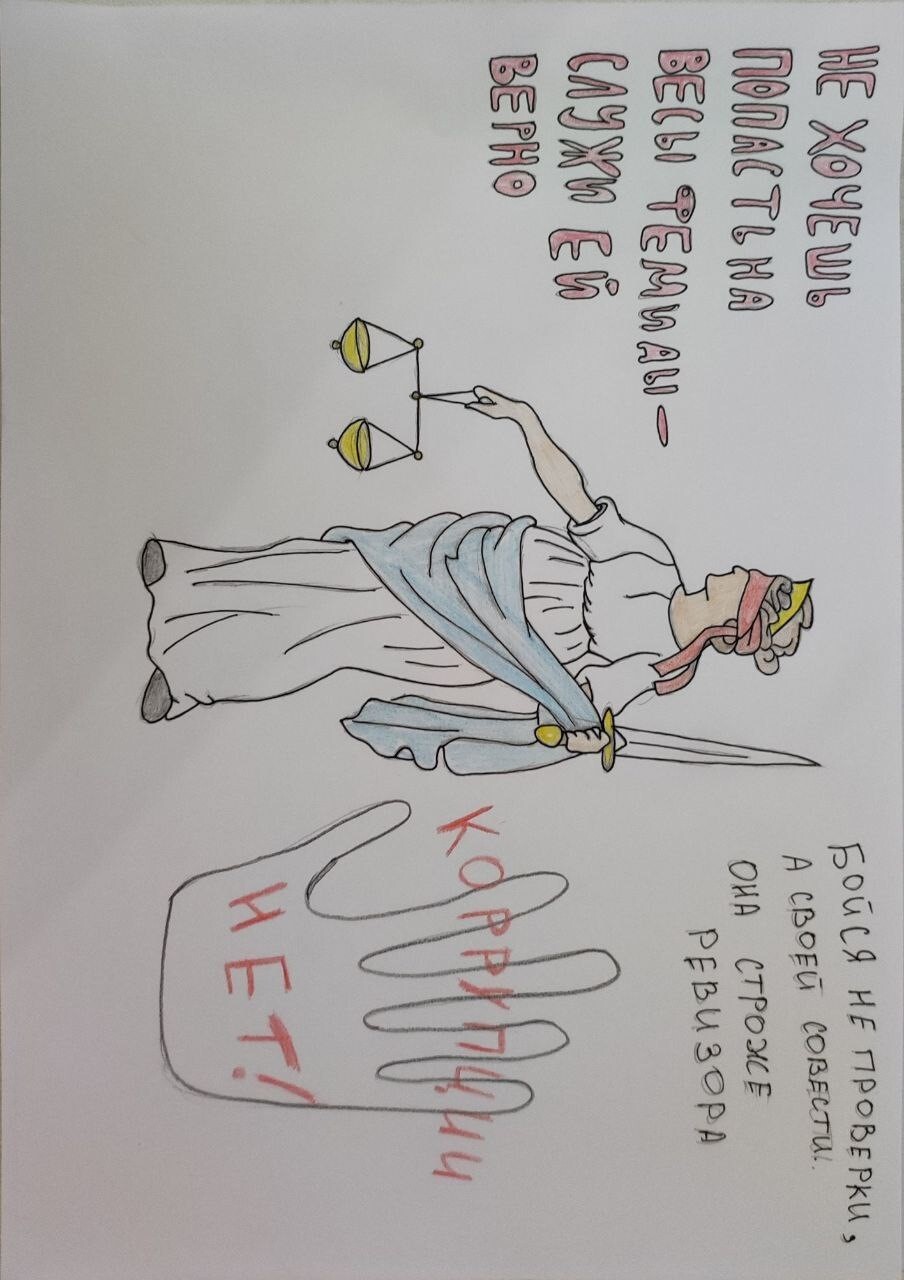 НЕ ХОЧЕШЬ
ПОПАСТЬ НА
ВЕСЫ ФЕМИДЫ —
СЛУЖИ ЕЙ
ВЕРНО
БОЙСЯ НЕ ПРОВЕРКИ,
А СВОЕЙ СОВЕСТИ!
ОНА СТРОЖЕ
РЕВИЗОРА
КОРРУПЦИИ
НЕТ!